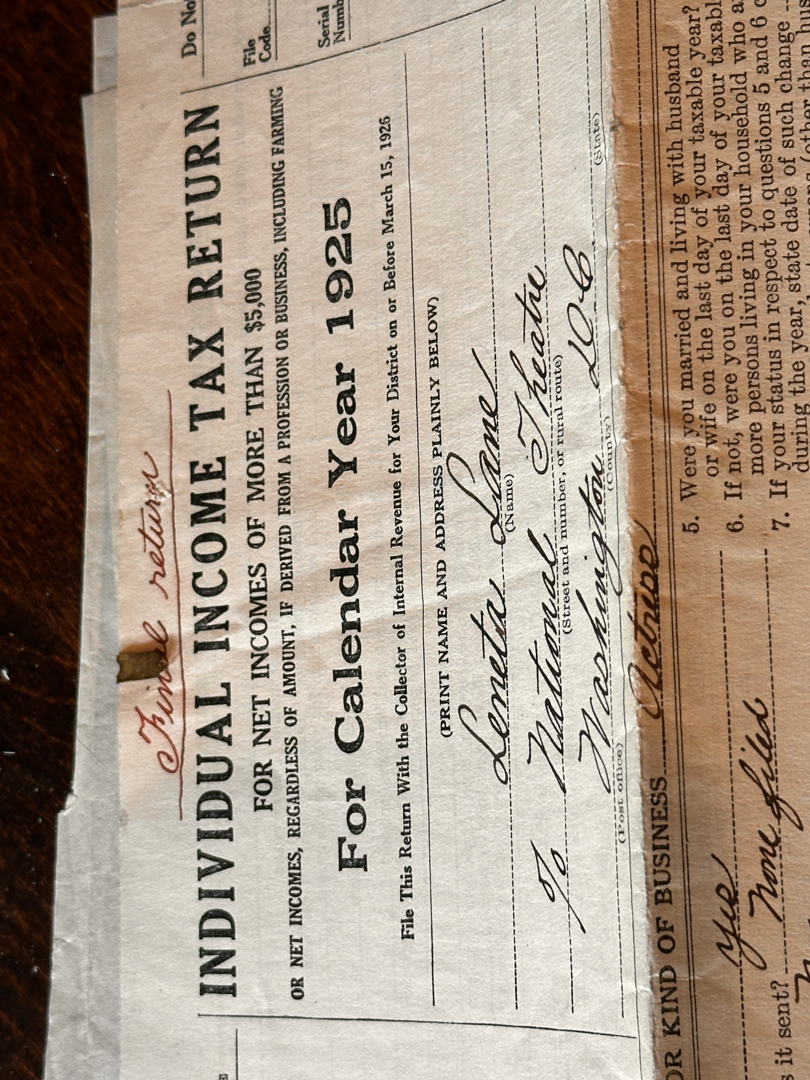 Final return
INDIVIDUAL INCOME TAX RETURN
FOR NET INCOMES OF MORE THAN $5,000
OR NET INCOMES, REGARDLESS OF AMOUNT, IF DERIVED FROM A PROFESSION OR BUSINESS, INCLUDING FARMING
For Calendar Year 1925
File This Return With the Collector of Internal Revenue for Your District on or Before March 15, 1926
(PRINT NAME AND ADDRESS PLAINLY BELOW)
Lenetia Lane
(Name)
% National Theatre
(Street and number, or rural route)
Washington D C
(Post office) (County) (State)
Do No
File
Code
Serial
Numb
OR KIND OF BUSINESS Actress
Yes
s it sent? None filed
5. Were you married and living with husband
or wife on the last day of your taxable year?
6. If not, were you on the last day of your taxabl
more persons living in your household who a
7. If your status in respect to questions 5 and 6 c
during the year, state date of such change